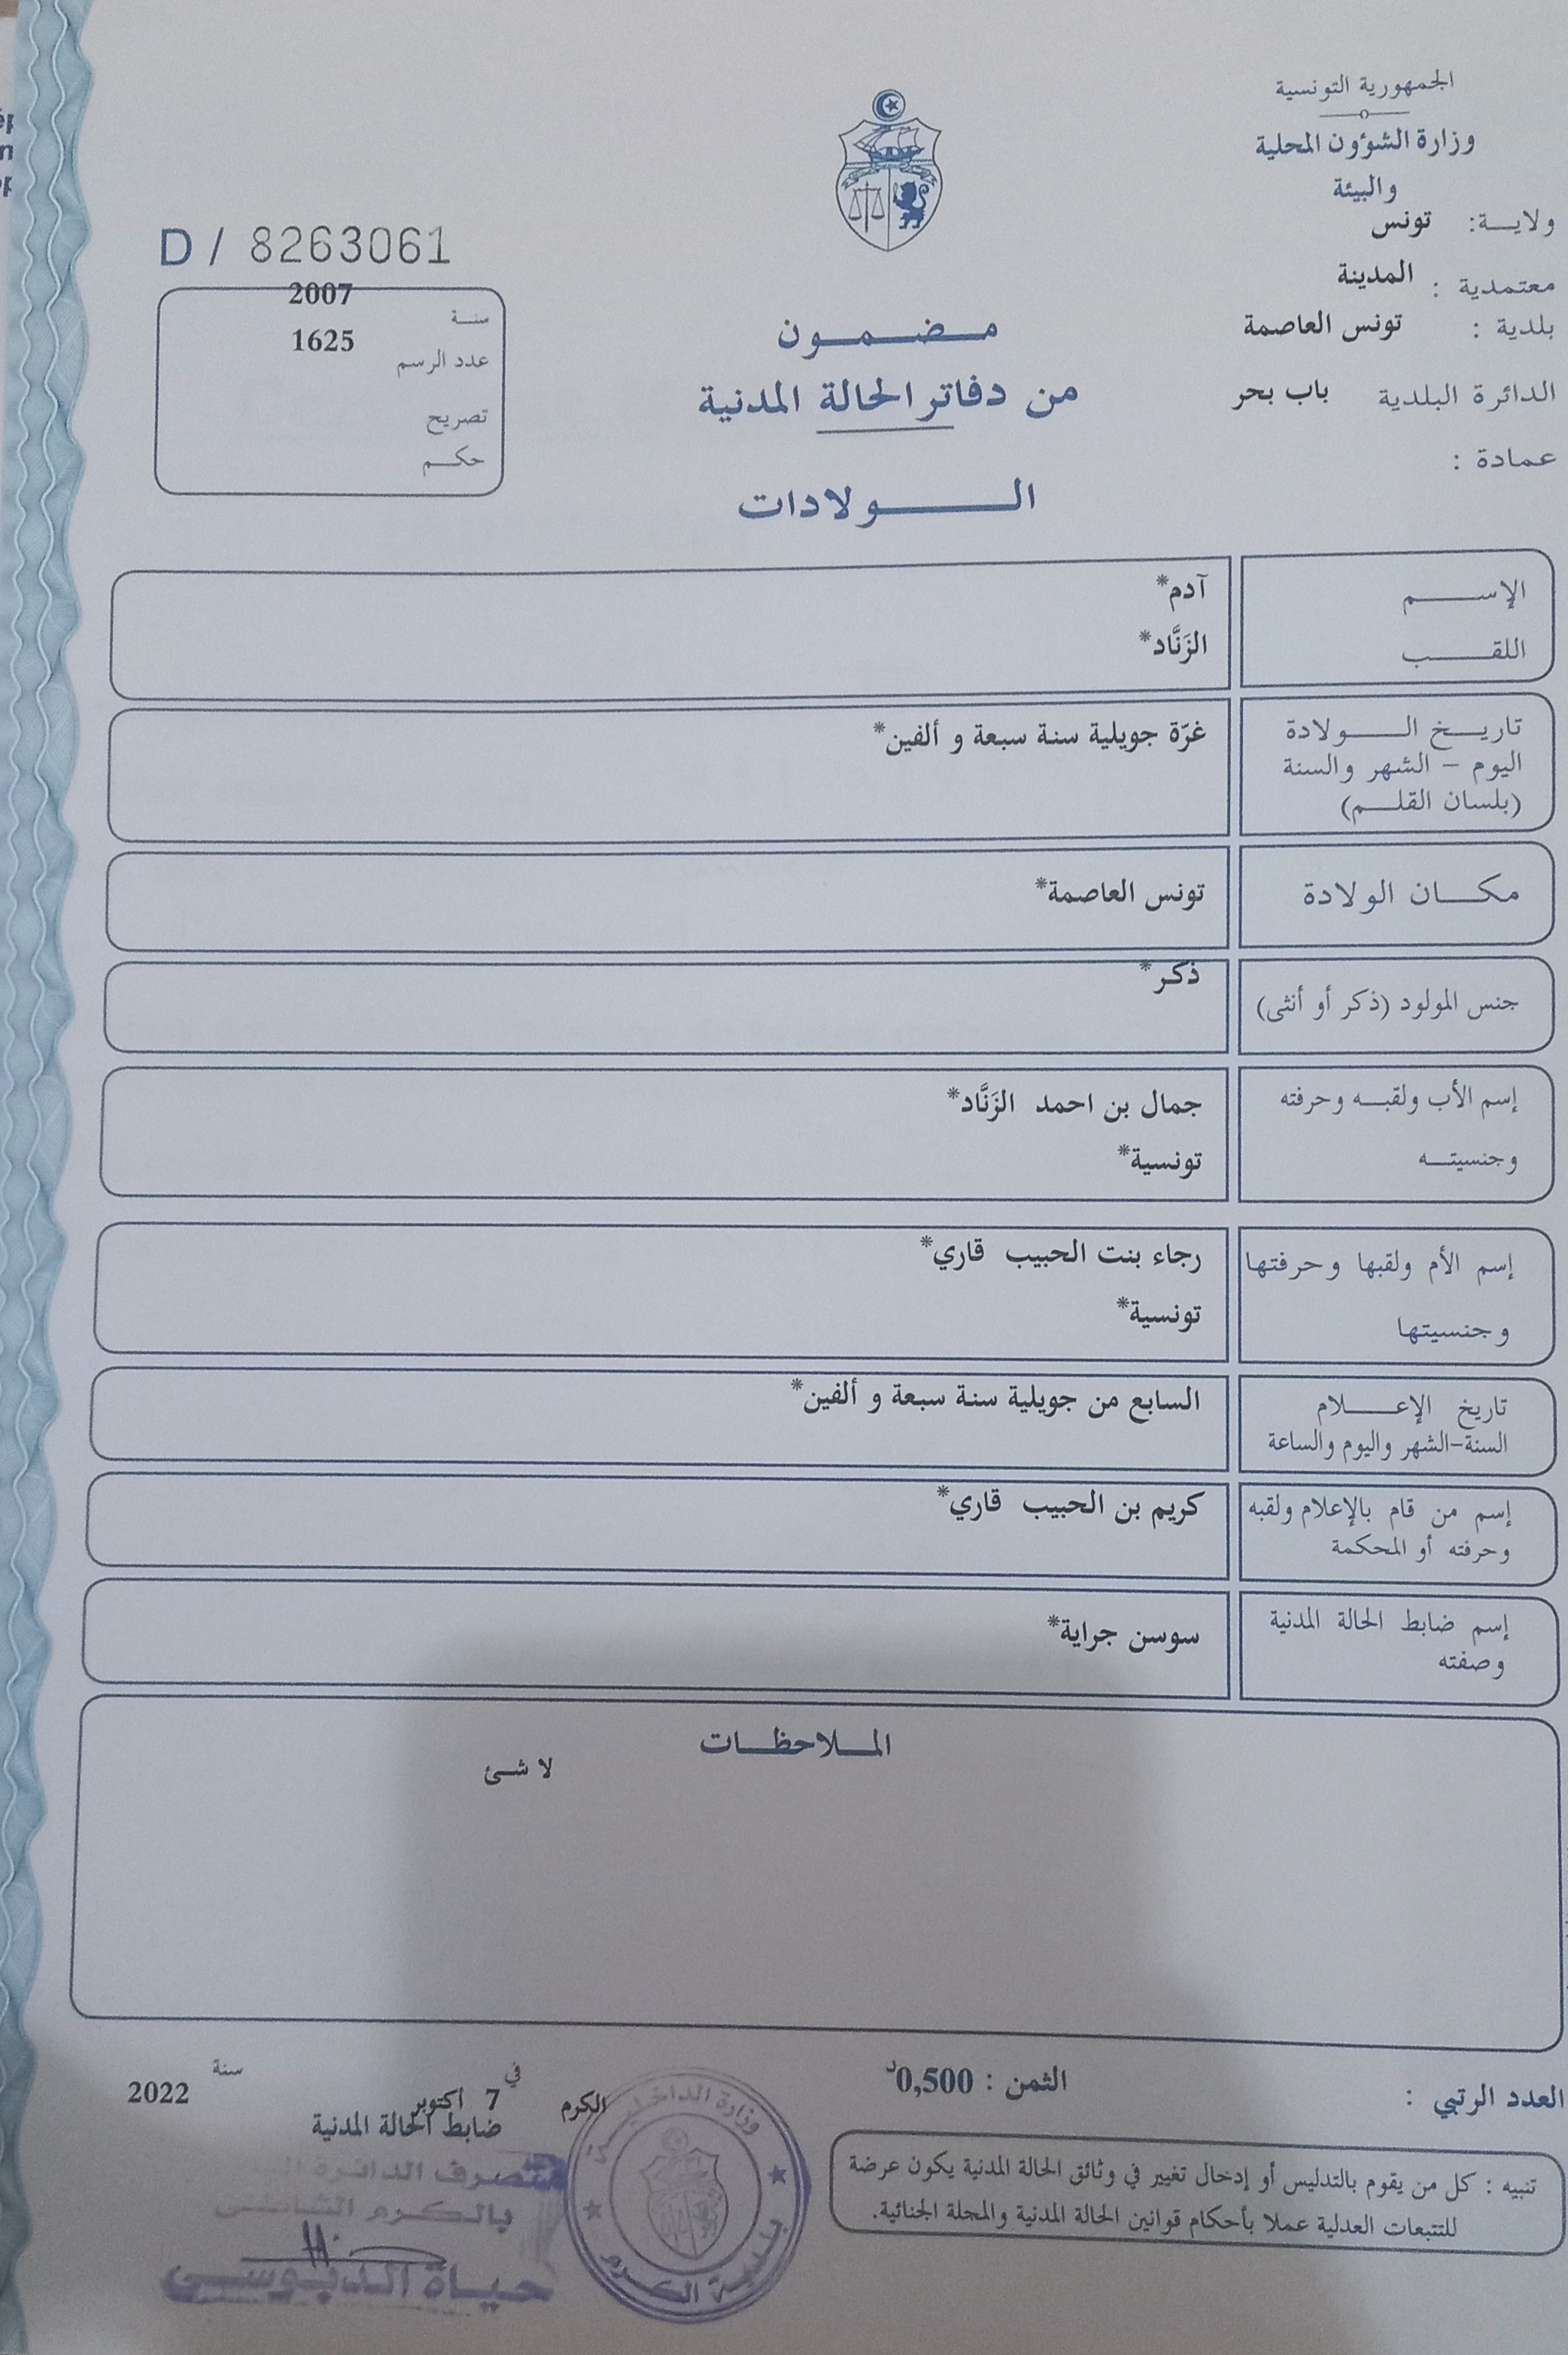 الجمهورية التونسية
وزارة الشؤون المحلية
والبيئة
ولاية: تونس
معتمدية : المدينة
بلدية : تونس العاصمة
الدائرة البلدية باب بحر
عمادة :
D / 8263061
سنة 2007
عدد الرسم 1625
تصريح
حكم
مضمون
من دفاتر الحالة المدنية
الولادات
الإسم آدم*
اللقب الزَنَّاد*
تاريخ الولادة غرّة جويلية سنة سبعة و ألفين*
اليوم – الشهر والسنة
(بلسان القلم)
مكان الولادة تونس العاصمة*
جنس المولود (ذكر أو أنثى) ذكر*
إسم الأب ولقبه وحرفته جمال بن احمد الزَنَّاد*
وجنسيته تونسية*
إسم الأم ولقبها وحرفتها رجاء بنت الحبيب قاري*
وجنسيتها تونسية*
تاريخ الإعلام السابع من جويلية سنة سبعة و ألفين*
السنة-الشهر واليوم والساعة
إسم من قام بالإعلام ولقبه كريم بن الحبيب قاري*
وحرفته أو المحكمة
إسم ضابط الحالة المدنية سوسن جراية*
وصفته
الملاحظات
لا شئ
العدد الرتبي :
الثمن : 0,500د
الكرم في 7 اكتوبر سنة 2022
ضابط الحالة المدنية
متصرف الدائرة
بالكرم الشمالي
حياة الدبوسي
وزارة الداخلية
بلدية الكرم
تنبيه : كل من يقوم بالتدليس أو إدخال تغيير في وثائق الحالة المدنية يكون عرضة
للتتبعات العدلية عملا بأحكام قوانين الحالة المدنية والمجلة الجنائية.